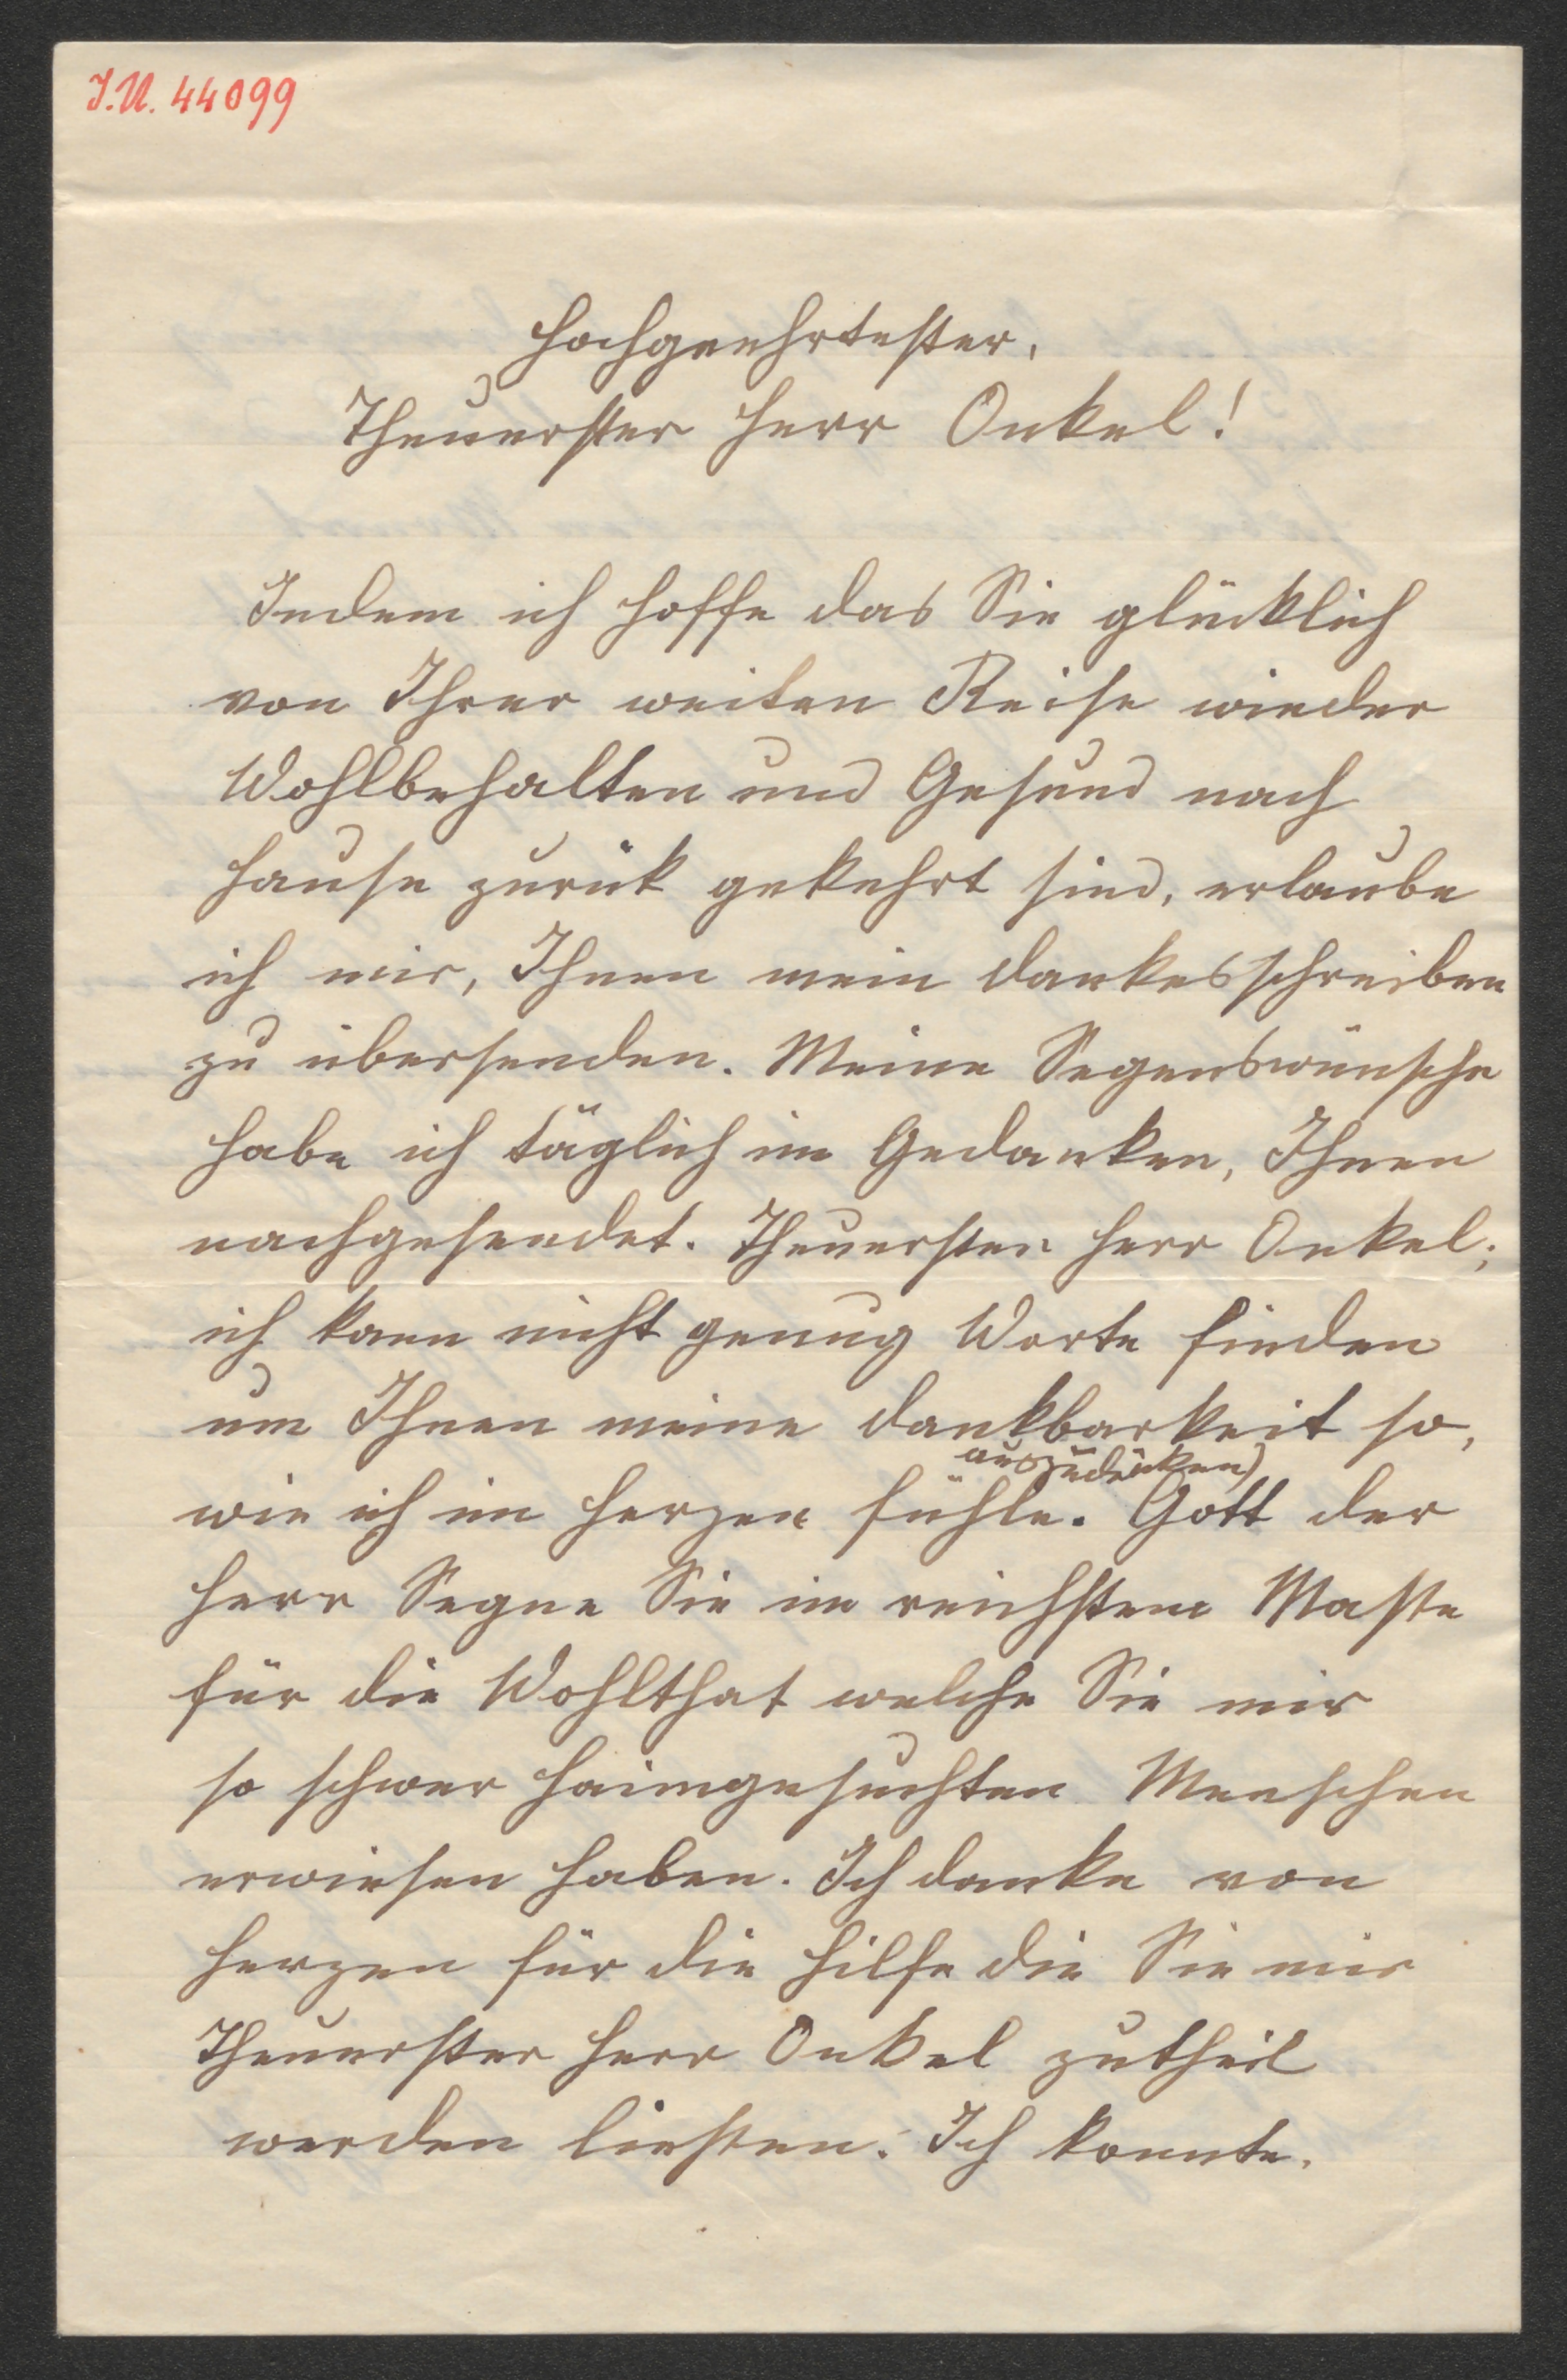 I.N. 44099
Hochgeehrtester,
Theuerster Herr Onkel!
Indem ich hoffe das Sie glücklich
von Ihrer weiten Reise wieder
Wohlbehalten und Gesund nach
Hause zurük gekehrt sind, erlaube
ich mir, Ihnen mein Dankesschreiben
zu übersenden. Meine Segenswünsche
habe ich täglich im Gedanken, Ihnen
nachgesendet. Theuerster Herr Onkel;
ich kann nicht genug Worte finden
um Ihnen meine Dankbarkeit so,
auszudrüken)
wie ich im Herzen fühle. Gott der
Herr Segne Sie im reichstem Maße
für die Wohlthat welche Sie mir
so schwer haimgesuchten Menschen
erwiesen haben. Ich danke von
Herzen für die Hilfe die Sie mir
Theuerster Herr Onkel zutheil
werden ließen. Ich konnte,